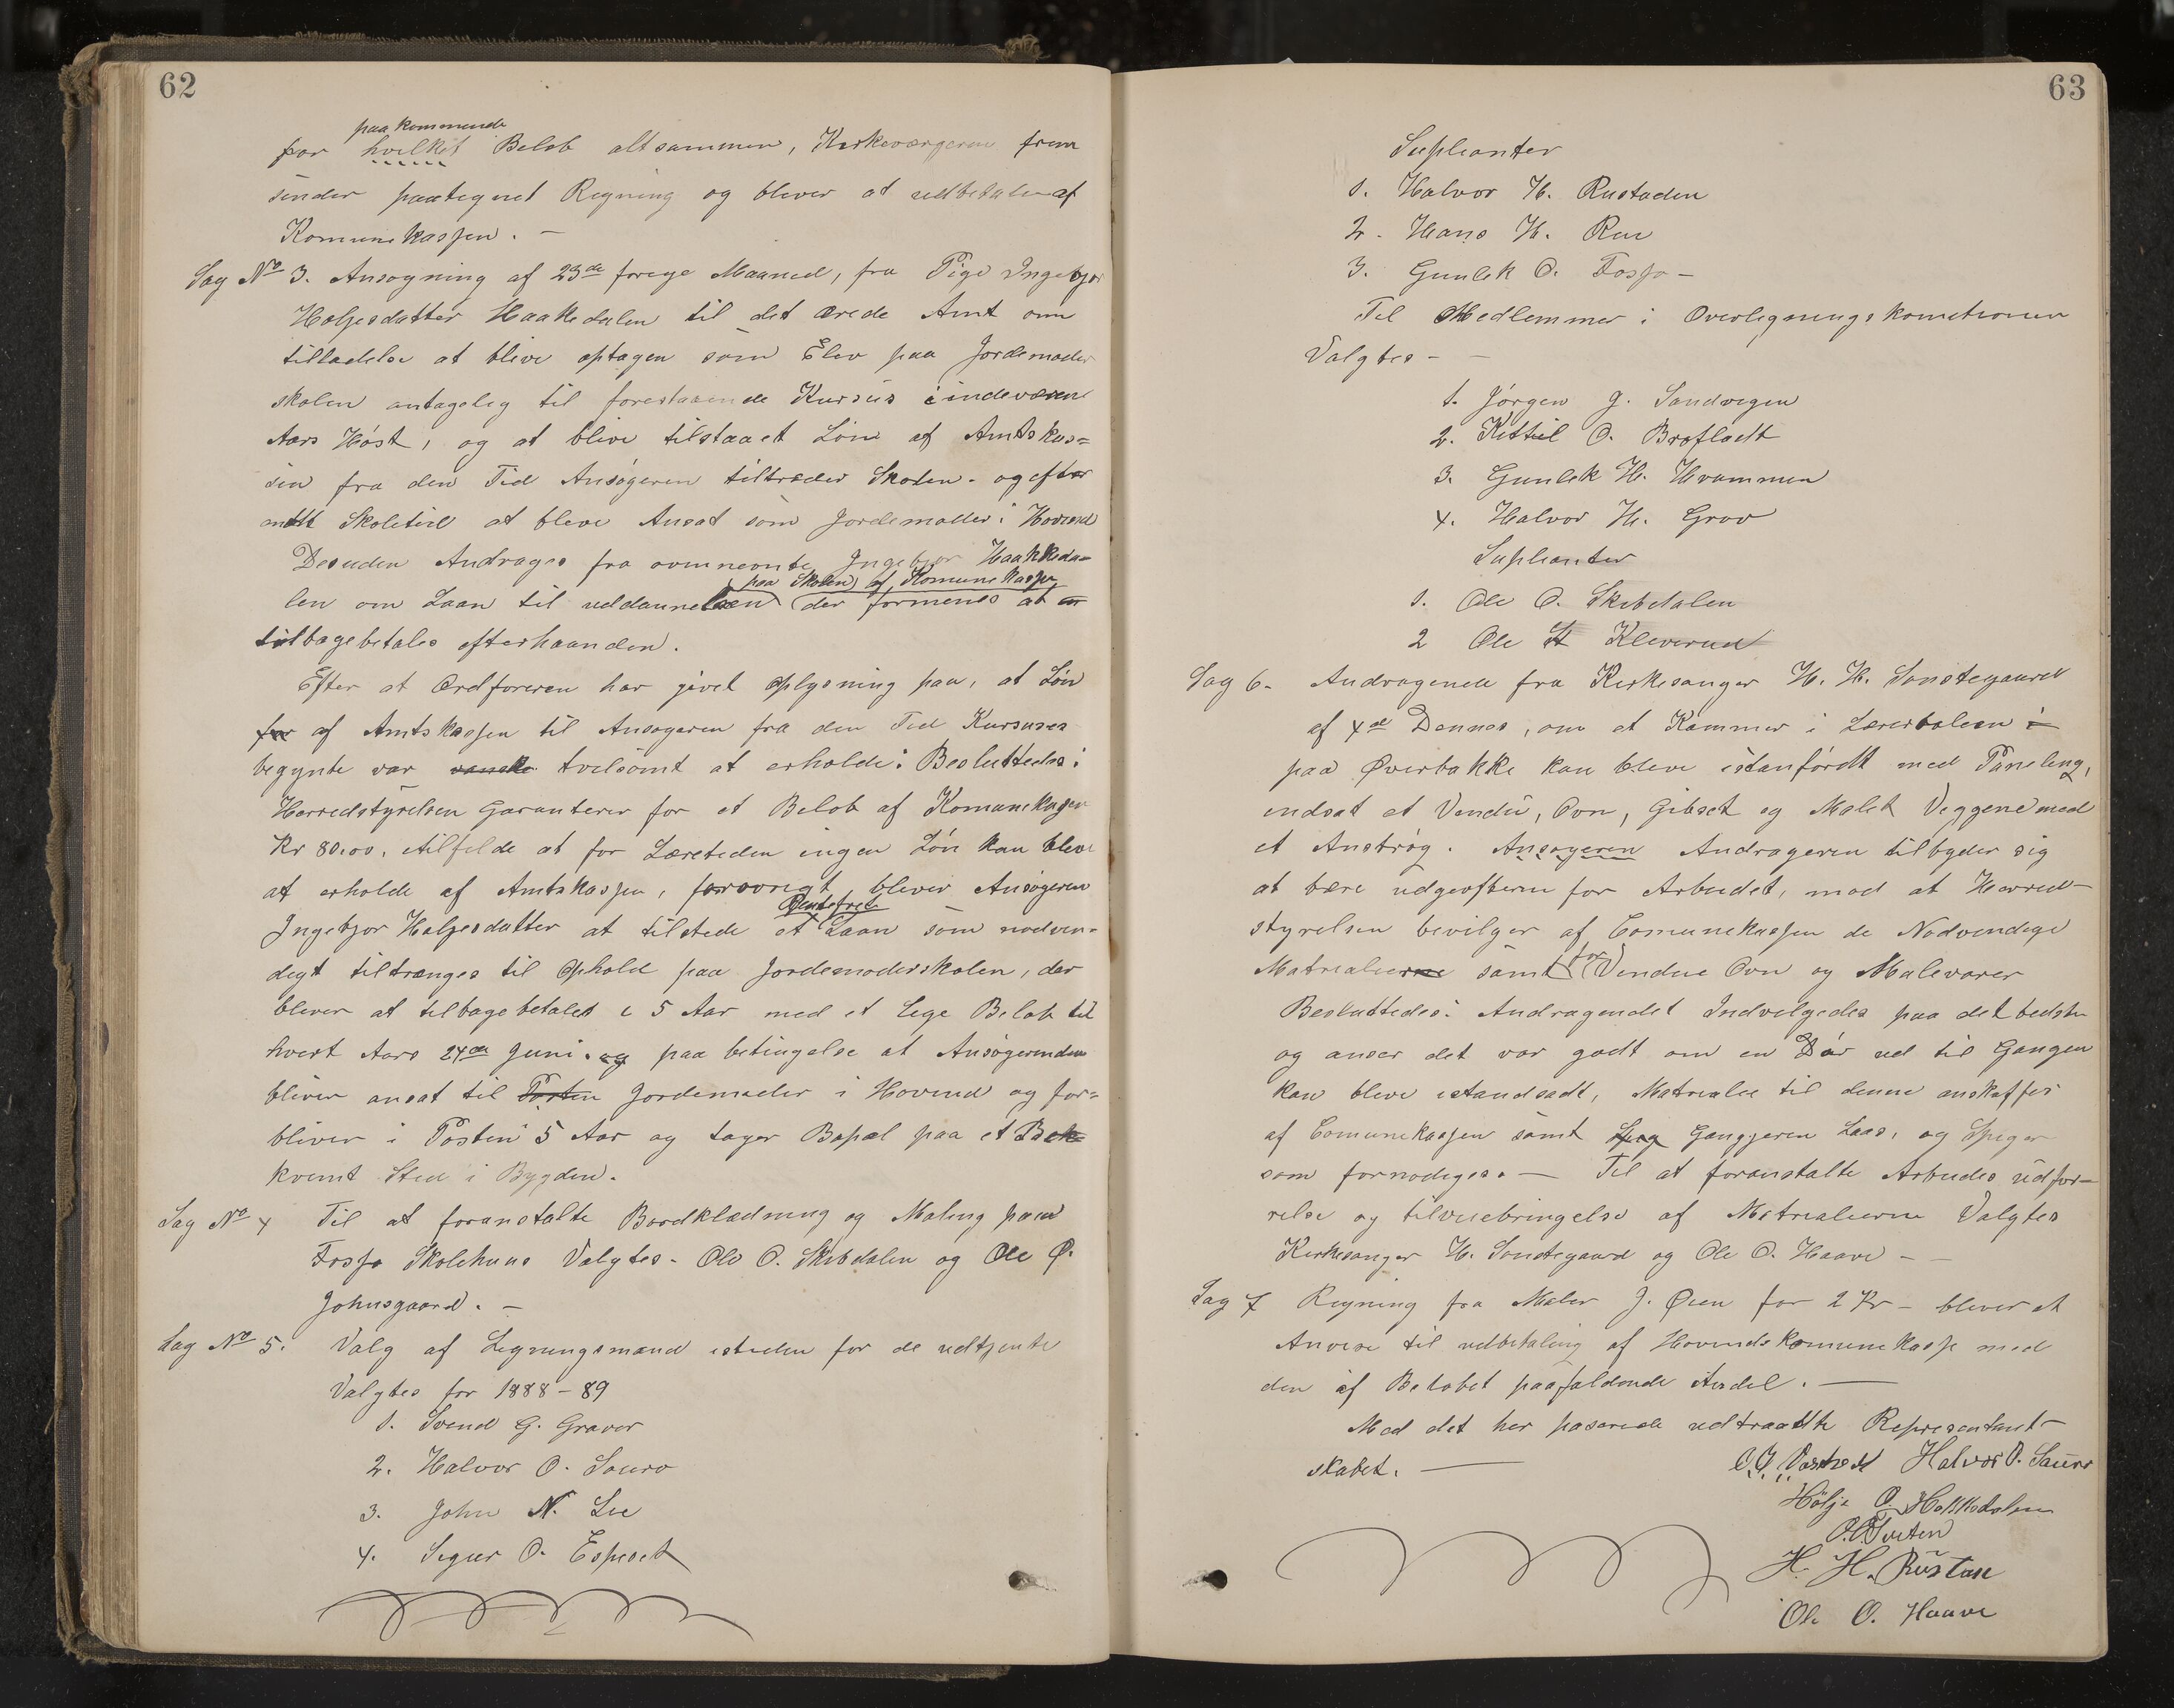 62
paa kommende
for hvilket Beløb altsammen, Kirkeværgerne frem
sender paategnet Regning og bliver at udbetale af
Komunekassen. –
Sag No 3. Ansøgning af 23de forige Maaned, fra Pige Ingebjør
Holjesdatter Haakedalen til det ærede Amt om
tilladelse at blive optagen som Elev paa Jordemoder
skolen antagelig til forestaaende Kursus i indeværene
Aars Høst, og at blive tilstaaet Løn af Amtskas=
sen fra den Tid Ansøgeren tiltræder Skolen. og efter
endt Skoletid at blive Ansat som Jordemoder i Hovind
Desuden Andrages fra ovennevnte Ingebjør Haakkeda=
paa Skolen af Komunekasse
len om Laan til uddannelsen der formenes at
tilbagebetales efterhaanden.
Efter at Ordføreren har givet Oplysning paa, at Løn
for af Amtskassen til Ansøgeren fra den Tid Kursuset
begynte var vanske tvilsomt at erholde: Besluttedes:
Herredstyrelsen Garanterer for et Beløb af Komunekassen
Kr 80.00. itilfelde at for Læretiden ingen Løn kan blive
at erholde af Amtskassen, forøvrigt bliver Ansøgeren
Rentefrit
Ingebjor Holjesdatter at tilstede et Laan som nødven=
digt tiltrænges til Ophold paa Jordemoderskolen, der
bliver at tilbagebetales i 5 Aar med et lige Beløb til
hvert Aars 24de Juni. og paa betingelse at Ansøgerinden
bliver ansat til Posten Jordemoder i Hovind og for=
bliver i Posten 5 Aar og tager Bopæl paa et Bek=
kvemt Sted i Bygden.
Sag No 4 Til at foranstalte Bordklædning og Maling paa
Fosso Skolehuus Valgtes. Ole O. Skibdalen og Ole Ø.
Johnsgaard. –
Sag No 5. Valg af Ligningsmænd isteden for de udtjente
Valgtes for 1888–89
1. Svend G. Graver
2. Halvor O. Sauro
3. John N. Lie
4. Sigur O. Espeset
63
Suplianter
1. Halvor H. Rustaden
2. Hans H. Rue
3. Gunlek O. Fosso –
Til Medlemmer i Overligningskometionen
Valgtes – –
1. Jörgen J. Sandvigen
2. Kittil O. Brofladt
3. Gunlek H. Hvammen
4. Halvor H. Grov
Suplianter
1. Ole O. Skibdalen
2 Ole H Kleverud
Sag 6. Andragende fra Kirkesanger H. H. Sønstegaard
af 4de Dennes, om et Kammer i Lærerbolien i
paa Øverbakke kan blive istanfördt med Paneling,
indsat et Vendu, Ovn, Gibset og Malet Veggene med
et Anströg. Ansøgeren Andrageren tilbyder sig
at bære udgevfterne for Arbeidet, mod at Herred–
styrelsen bevilger af Comunekassen de Nødvendige
Matrialierne samt for Vendue Ovn og Malevarer
Besluttedes: Andragendet Indvelgedes paa det bedste
og anser det var godt om en Dör ud til Gangen
kan blive istandsadt, Matrialie til denne anskaffes
af Comunekassen samt Spig Gangjeren Laas, og Spiger
som fornødiges. – Til at foranstalte Arbeides udfør–
relse og tilveiebringelse af Matrialierne Valgtes
Kirkesanger H. Sønstegaard og Ole O. Haave – –
Sag 7 Regning fra Maler J. Øien for 2 Kr – bliver at
Anvise til udbetaling af Hovinds komunekasse med
den af Beløbet paafaldende Andel. –
Med det her paserede udtraadte Representant–
skabet. –
Halvor O. Sauro
Hölje O. Hakkedalen
O. O. Sveten
H. H. Rustan
Ole O. Haave